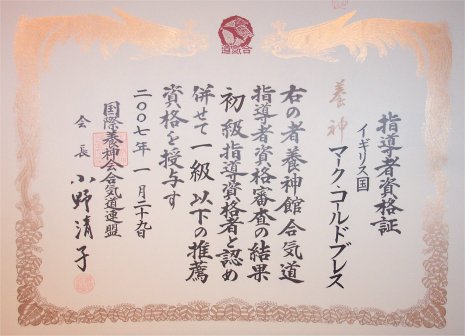 指導者資格証
イギリス国
養神 マーク・コルドブレス
右の者養神館合気道
指導者資格審査の結果
初級指導資格者と認め
併せて一級以下の推薦
資格を授与す
二〇〇七年一月二十九日
国際養神会合気道連盟
会長 小野清子